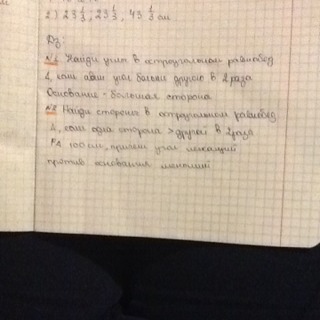 2) 23 1/3, 23 1/3, 43 1/3 см
Дз:
№1. Найди углы в остроугольном равнобед
Δ, если один угол больше другого в 2 раза
Основание - большая сторона
№2 Найди стороны в остроугольном равнобед
Δ, если одна сторона > другой в 2 раза
PΔ 100 см, причем угол лежащий
против основания меньший